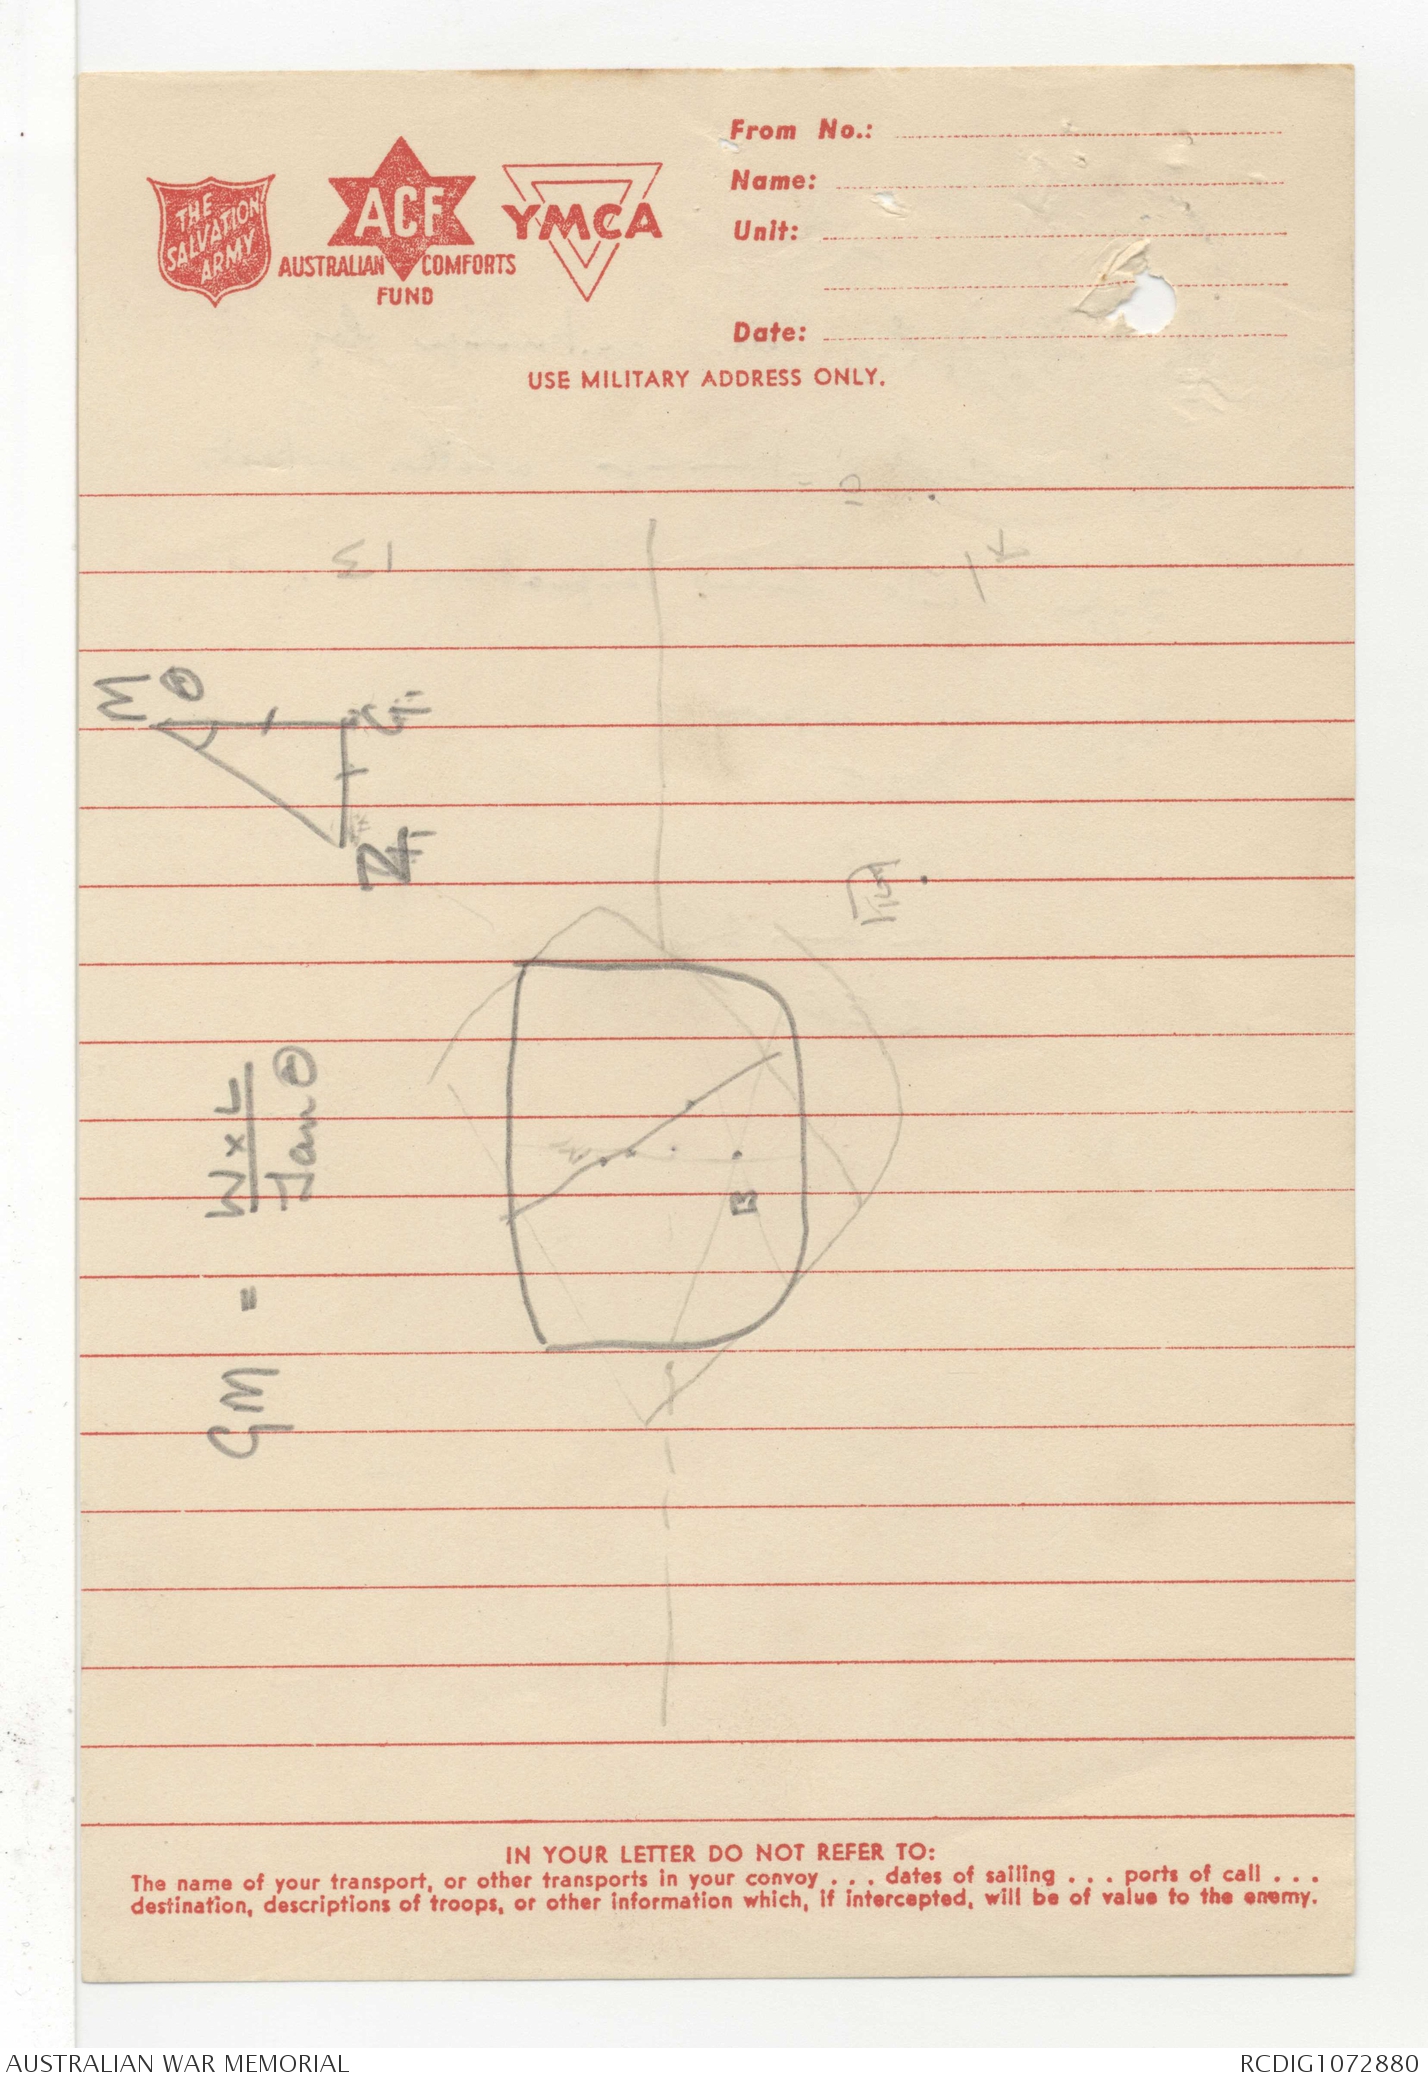 THE
SALVATION
ARMY
ACF
AUSTRALIAN COMFORTS
FUND
YMCA
From No.:
Name:
Unit:
Date:
USE MILITARY ADDRESS ONLY.
M θ
GM = W x L
Tan θ
B
IN YOUR LETTER DO NOT REFER TO:
The name of your transport, or other transports in your convoy . . . dates of sailing . . . ports of call . . .
destination, descriptions of troops, or other information which, if intercepted, will be of value to the enemy.
AUSTRALIAN WAR MEMORIAL
RCDIG1072880